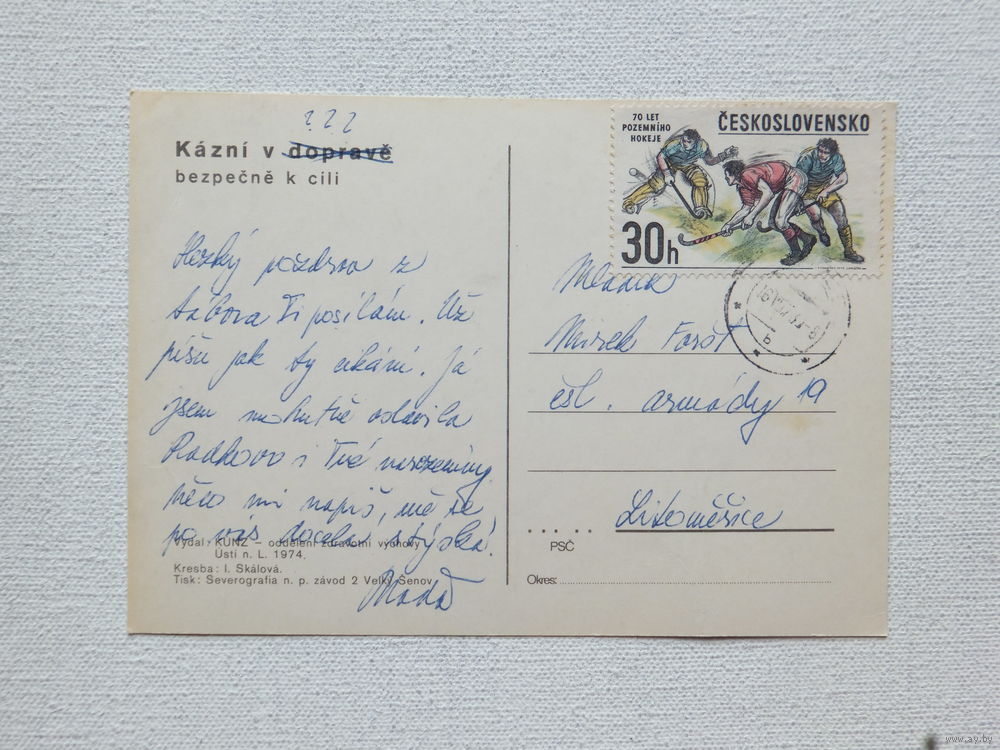 ? ? ?
Kázní v dopravě
bezpečně k cíli
Hezký pozdrav z
tábora Ti posílám. Už
píšu jak ty cikáni. Já
jsem mohutně oslavila
Radkovo i Tvé narozeniny
něco mi napiš, mě se
po vás docela stýská!
Vydal: KÚNZ – oddělení zdravotní výchovy
Ústí n. L. 1974.
Kresba: I. Skálová.
Tisk: Severografia n. p. závod 2 Velký Šenov
70 LET
POZEMNÍHO
HOKEJE
ČESKOSLOVENSKO
30h
Mirek Foršt
čsl. armády 19
Litoměřice
PSČ
Okres:
www.ay.by